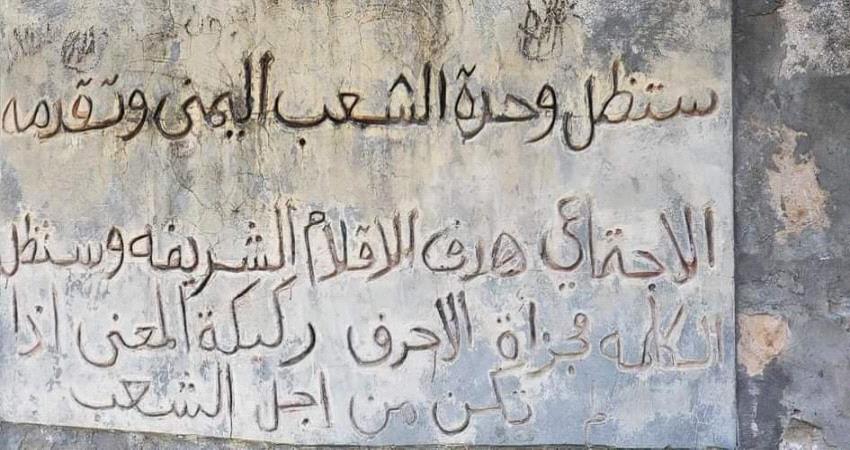 ستظل وحدة الشعب اليمنى وتقدمه
الاجتماعي هدف الاقلام الشريفه وستظل
الكلمه مجزأة الاحرف ركيكة المعنى اذا
لم تكن من اجل الشعب